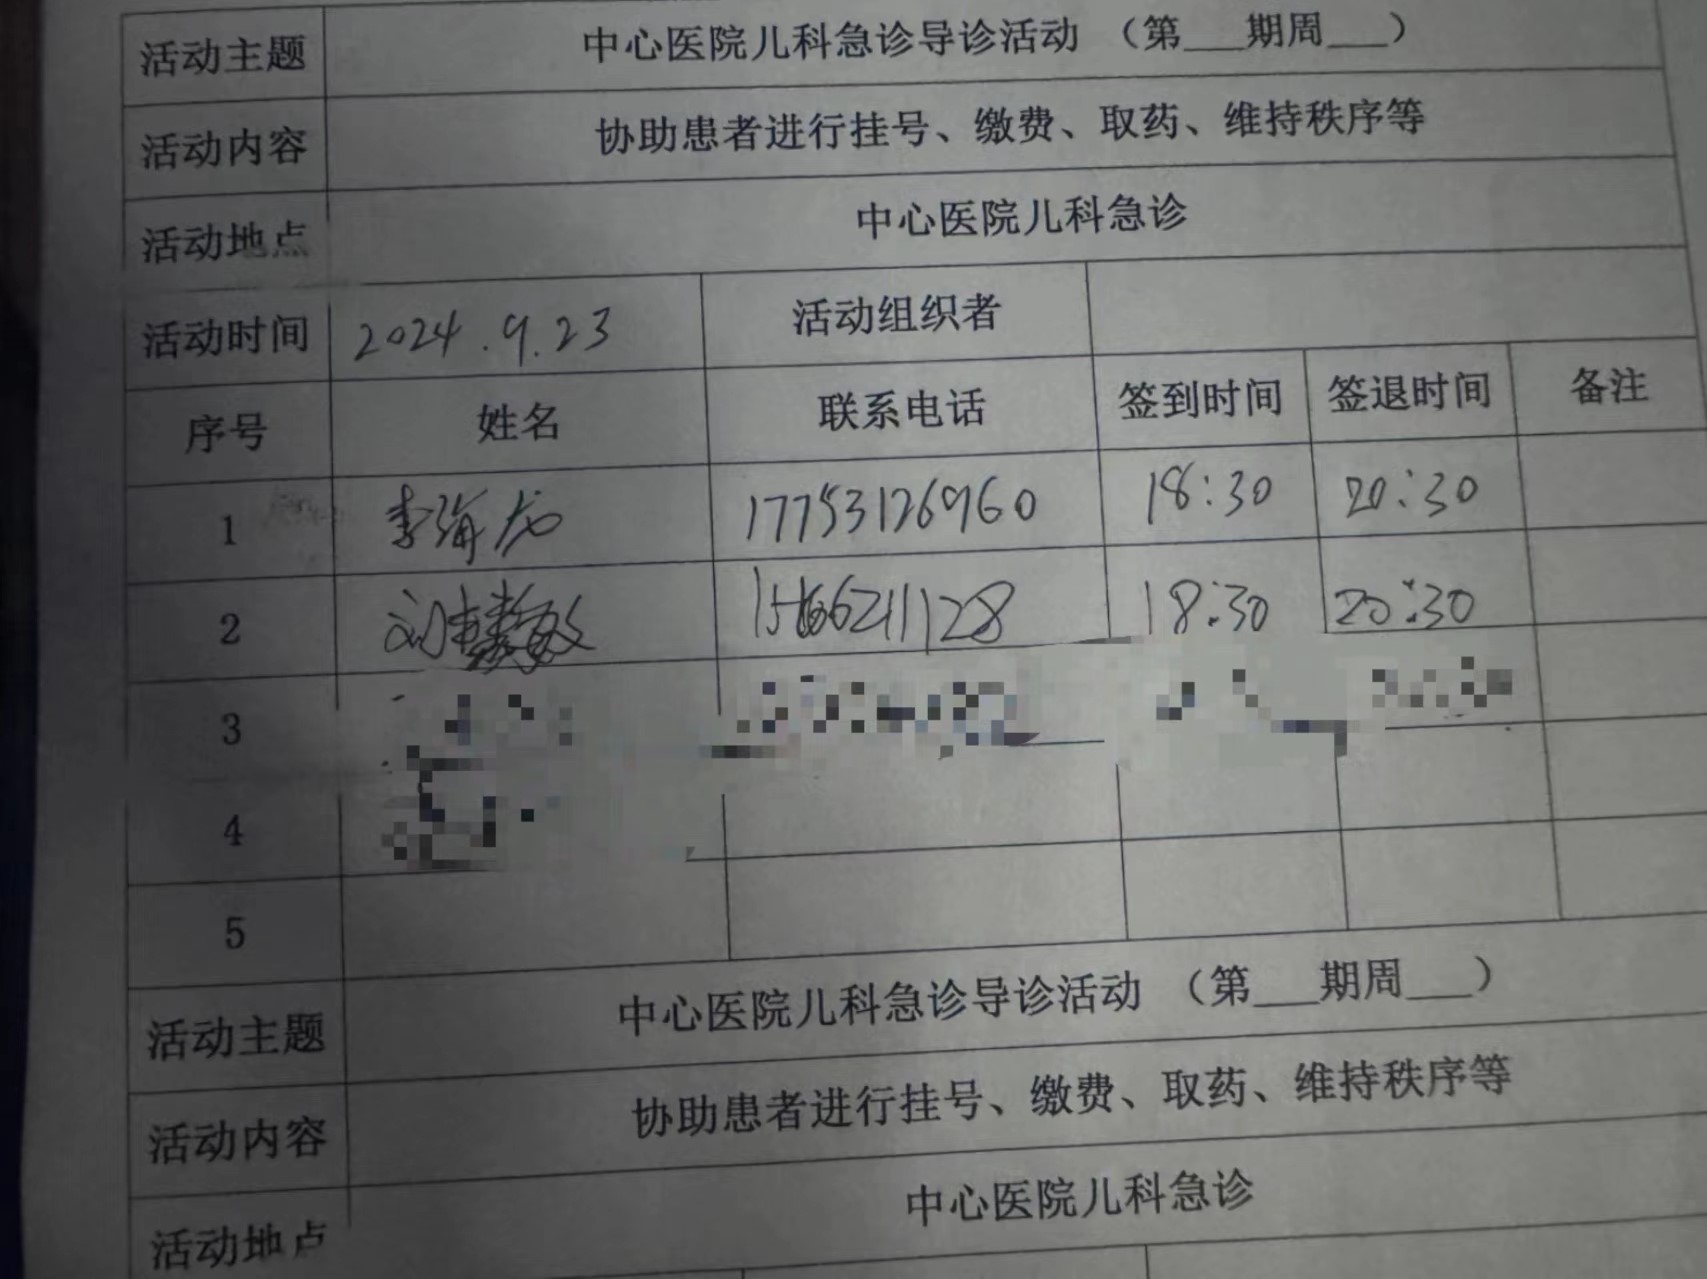 活动主题 中心医院儿科急诊导诊活动（第___期周___）
活动内容 协助患者进行挂号、缴费、取药、维持秩序等
活动地点 中心医院儿科急诊
活动时间 2024.9.23 活动组织者
序号 姓名 联系电话 签到时间 签退时间 备注
1 李海龙 17753126960 18:30 20:30
2 刘 18:30 20:30
3
4
5
活动主题 中心医院儿科急诊导诊活动（第___期周___）
活动内容 协助患者进行挂号、缴费、取药、维持秩序等
活动地点 中心医院儿科急诊